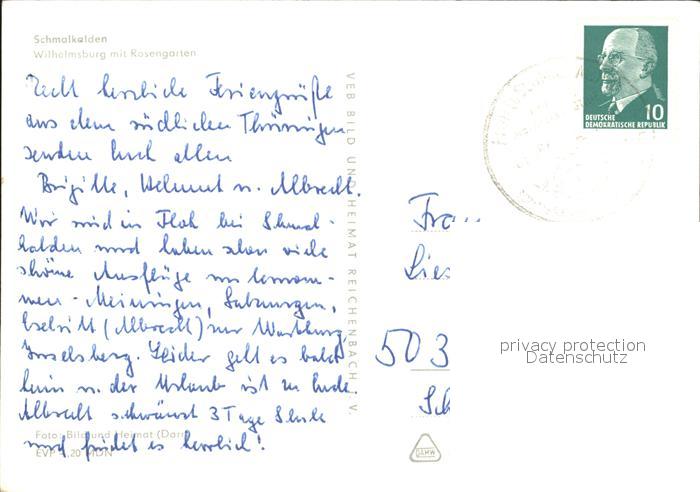 Schmalkalden
Wilhelmsburg mit Rosengarten
Recht herzliche Feriengrüße
aus dem südlichen Thüringen
senden Euch allen
Brigitte, Helmut u. Albrecht.
Wir sind in Floh bei Schmal-
kalden und haben schon viele
schöne Ausflüge unternom-
men - Meiningen, Salzungen,
Eselsritt (Albrecht) zur Wartburg,
Inselsberg. Leider geht es bald
heim u. der Urlaub ist zu Ende.
Albrecht schwänzt 3 Tage Schule
und findet es herrlich!
Foto: Bild und Heimat
EVP MDN
VEB BILD UND HEIMAT REICHENBACH I. V.
10
DEUTSCHE
DEMOKRATISCHE REPUBLIK
503
privacy protection
Datenschutz
DAMW